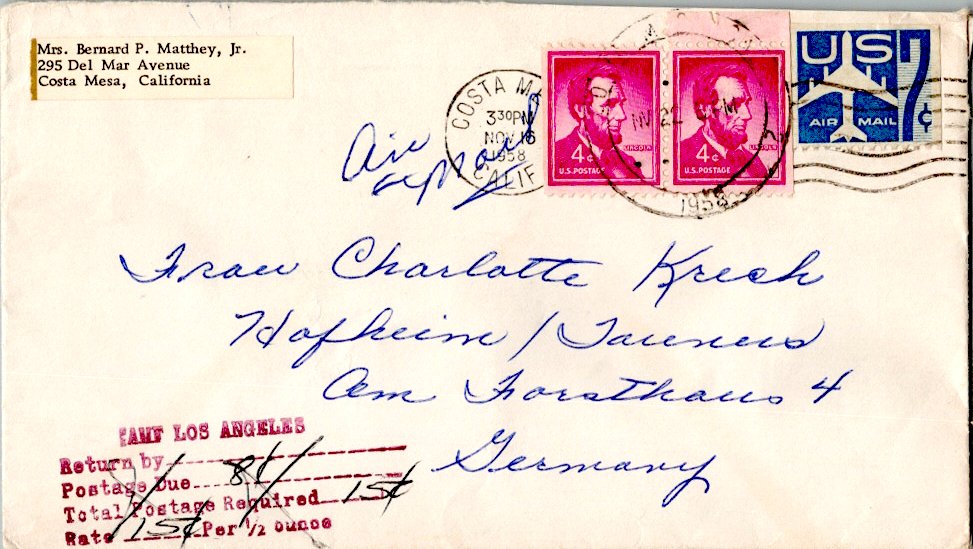 Mrs. Bernard P. Matthey, Jr.
295 Del Mar Avenue
Costa Mesa, California
COSTA MESA
3 30 PM
NOV 16
1958
CALIF
4¢
LINCOLN
U.S. POSTAGE
4¢
LINCOLN
U.S. POSTAGE
NOV 22 PM
1958
US
AIR MAIL
7¢
Air
Mail
Frau Charlotte Krech
Hofheim / Taunus
Am Forsthaus 4
Germany
AMF LOS ANGELES
Return by
Postage Due 8¢
Total Postage Required 15¢
Rate 15¢ Per 1/2 ounce